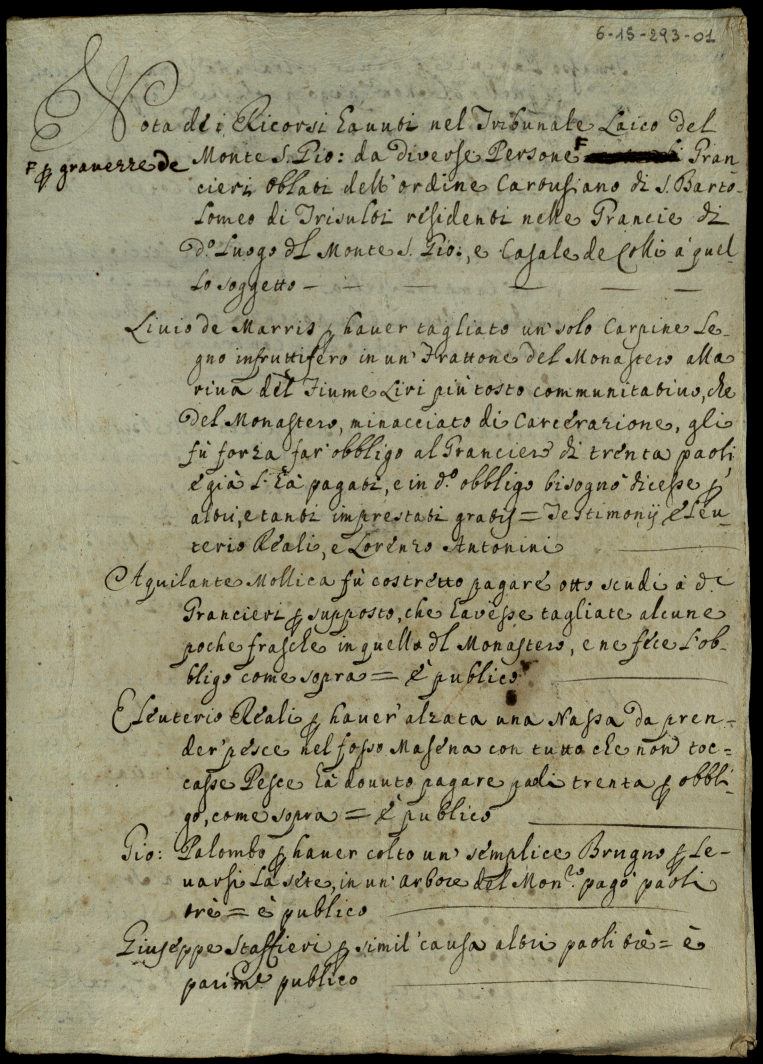 6-15-293-01
Nota de i Ricorsi havuti nel Tribunale Laico del
F p gravezze de Monte S. Gio: da diverse Persone F Gran
cieri Oblati dell'ordine Cartusiano di S. Barto-
lomeo di Trisulti residenti nelle Grancie di
do. Luogo dl Monte S. Gio:, e Casale de Colli à quel
lo soggetto —
Livio de Marris p haver tagliato un solo Carpine Le-
gno infruttifero in un Frattone del Monastero alla
riva del Fiume Liri più tosto communitativo, che
del Monastero, minacciato di Carcerazione, gli
fù forza far obbligo al Granciero di trenta paoli
e già l'hà pagati, e in do. obbligo bisognò dicesse p
altri, e tanti imprestati gratis = Testimonij Eleu-
terio Reali, e Lorenzo Antonini
Aquilante Mollica fù costretto pagare otto scudi à di.
Grancieri p supposto, che havesse tagliate alcune
poche frasche in quello dl Monastero, e ne fece l'ob-
bligo come sopra = è publico
Eleuterio Reali p haver' alzata una Nassa da pren-
der' pesce nel fosso Masena con tutto che non toc=
casse Pesce hà dovuto pagare paoli trenta p obbli-
go, come sopra = è publico
Gio: Palombo p haver colto un' semplice Brugno p Le-
varsi la sete, in un' arbore del Monro. pagò paoli
trè = è publico
Giuseppe Staffieri p simil' causa altri paoli trè = è
parime publico